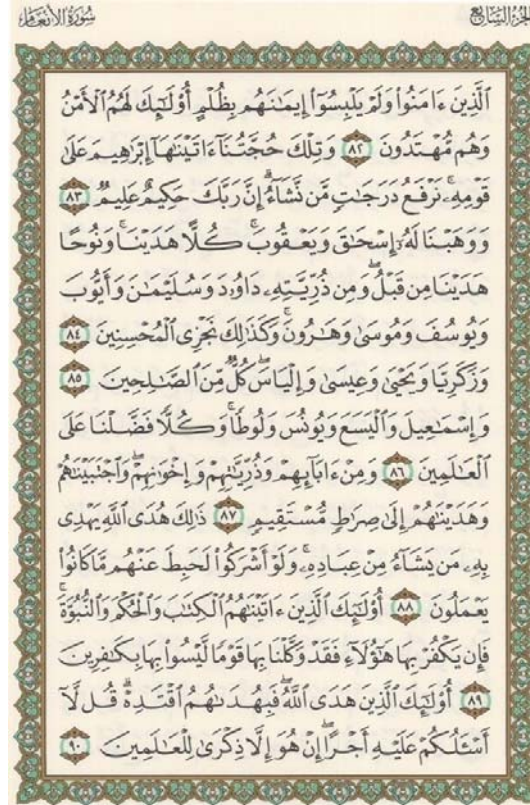 سُورَةُ الأَنعَامِ
الجُزْءُ السَّابِعُ
ٱلَّذِينَ ءَامَنُوا۟ وَلَمْ يَلْبِسُوٓا۟ إِيمَـٰنَهُم بِظُلْمٍ أُو۟لَـٰٓئِكَ لَهُمُ ٱلْأَمْنُ
وَهُم مُّهْتَدُونَ ٨٢ وَتِلْكَ حُجَّتُنَآ ءَاتَيْنَـٰهَآ إِبْرَٰهِيمَ عَلَىٰ
قَوْمِهِۦ ۚ نَرْفَعُ دَرَجَـٰتٍ مَّن نَّشَآءُ ۗ إِنَّ رَبَّكَ حَكِيمٌ عَلِيمٌ ٨٣
وَوَهَبْنَا لَهُۥٓ إِسْحَـٰقَ وَيَعْقُوبَ ۚ كُلًّا هَدَيْنَا ۚ وَنُوحًا
هَدَيْنَا مِن قَبْلُ ۖ وَمِن ذُرِّيَّتِهِۦ دَاوُۥدَ وَسُلَيْمَـٰنَ وَأَيُّوبَ
وَيُوسُفَ وَمُوسَىٰ وَهَـٰرُونَ ۚ وَكَذَٰلِكَ نَجْزِى ٱلْمُحْسِنِينَ ٨٤
وَزَكَرِيَّا وَيَحْيَىٰ وَعِيسَىٰ وَإِلْيَاسَ ۖ كُلٌّ مِّنَ ٱلصَّـٰلِحِينَ ٨٥
وَإِسْمَـٰعِيلَ وَٱلْيَسَعَ وَيُونُسَ وَلُوطًا ۚ وَكُلًّا فَضَّلْنَا عَلَى
ٱلْعَـٰلَمِينَ ٨٦ وَمِنْ ءَابَآئِهِمْ وَذُرِّيَّـٰتِهِمْ وَإِخْوَٰنِهِمْ ۖ وَٱجْتَبَيْنَـٰهُمْ
وَهَدَيْنَـٰهُمْ إِلَىٰ صِرَٰطٍ مُّسْتَقِيمٍ ٨٧ ذَٰلِكَ هُدَى ٱللَّهِ يَهْدِى
بِهِۦ مَن يَشَآءُ مِنْ عِبَادِهِۦ ۚ وَلَوْ أَشْرَكُوا۟ لَحَبِطَ عَنْهُم مَّا كَانُوا۟
يَعْمَلُونَ ٨٨ أُو۟لَـٰٓئِكَ ٱلَّذِينَ ءَاتَيْنَـٰهُمُ ٱلْكِتَـٰبَ وَٱلْحُكْمَ وَٱلنُّبُوَّةَ ۚ
فَإِن يَكْفُرْ بِهَا هَـٰٓؤُلَآءِ فَقَدْ وَكَّلْنَا بِهَا قَوْمًا لَّيْسُوا۟ بِهَا بِكَـٰفِرِينَ
٨٩ أُو۟لَـٰٓئِكَ ٱلَّذِينَ هَدَى ٱللَّهُ ۖ فَبِهُدَىٰهُمُ ٱقْتَدِهْ ۗ قُل لَّآ
أَسْـَٔلُكُمْ عَلَيْهِ أَجْرًا ۖ إِنْ هُوَ إِلَّا ذِكْرَىٰ لِلْعَـٰلَمِينَ ٩٠